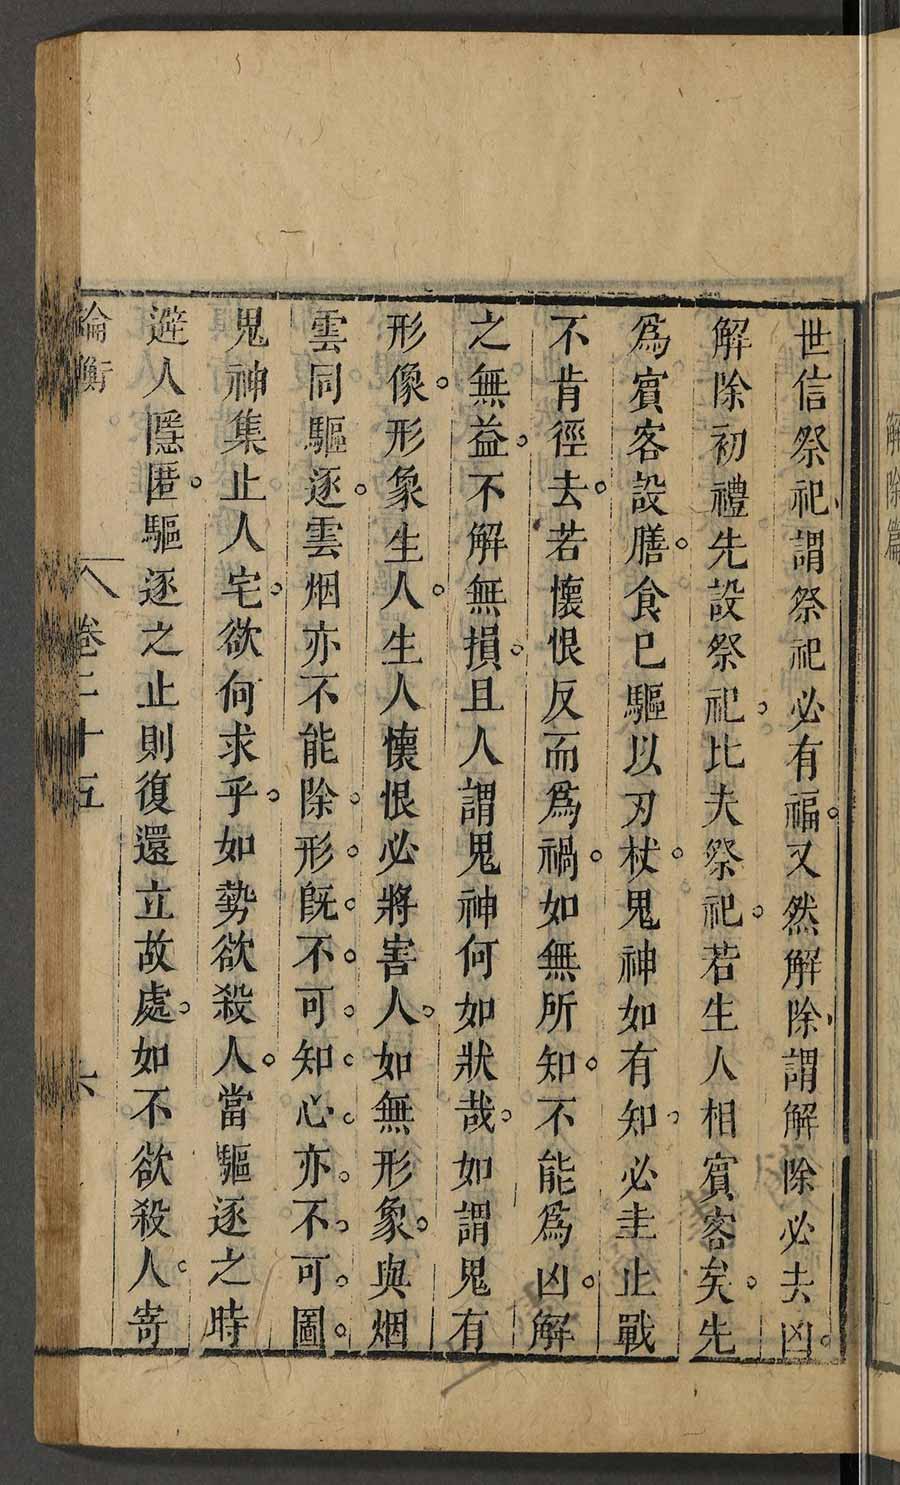 解除篇
世信祭祀謂祭祀必有福。又然解除謂解除必去凶。
解除初禮先設祭祀。比夫祭祀。若生人相賓客矣。先
爲賓客設膳。食巳驅以刃杖。鬼神如有知。必恚止戰
不肯徑去。若懷恨反而爲禍。如無所知。不能爲凶。解
之無益。不解無損。且人謂鬼神何如狀哉。如謂鬼有
形像。形象生人。生人懷恨必將害人。如無形象。與烟
雲同驅逐。雲烟亦不能除。形。旣。不。可。知。心。亦。不。可。圖。
鬼神集止人宅。欲何求乎。如勢欲殺人。當驅逐之時
避人隱匿。驅逐之止則復還立故處。如不欲殺人。寄
論衡 卷二十五 六